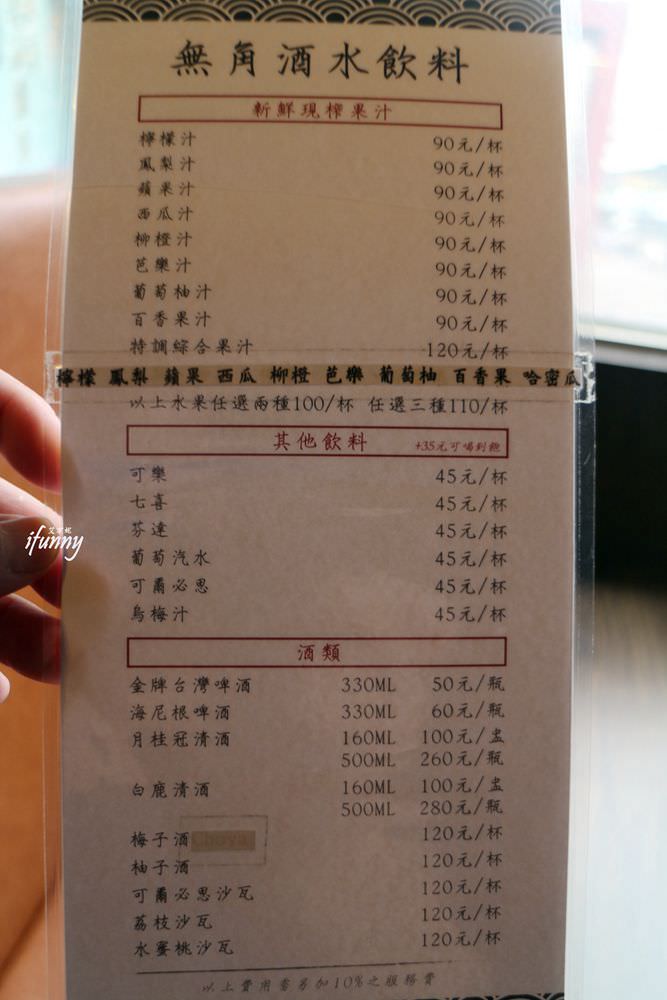 無角酒水飲料
新鮮現榨果汁
檸檬汁 90元/杯
鳳梨汁 90元/杯
蘋果汁 90元/杯
西瓜汁 90元/杯
柳橙汁 90元/杯
芭樂汁 90元/杯
葡萄柚汁 90元/杯
百香果汁 90元/杯
特調綜合果汁 120元/杯
檸檬 鳳梨 蘋果 西瓜 柳橙 芭樂 葡萄柚 百香果 哈密瓜
以上水果任選兩種100/杯 任選三種110/杯
其他飲料 +35元可喝到飽
可樂 45元/杯
七喜 45元/杯
芬達 45元/杯
葡萄汽水 45元/杯
可爾必思 45元/杯
烏梅汁 45元/杯
ifunny
酒類
金牌台灣啤酒 330ML 50元/瓶
海尼根啤酒 330ML 60元/瓶
月桂冠清酒 160ML 100元/盅
500ML 260元/瓶
白鹿清酒 160ML 100元/盅
500ML 280元/瓶
梅子酒 Choya 120元/杯
柚子酒 120元/杯
可爾必思沙瓦 120元/杯
荔枝沙瓦 120元/杯
水蜜桃沙瓦 120元/杯
以上費用需另加10%之服務費